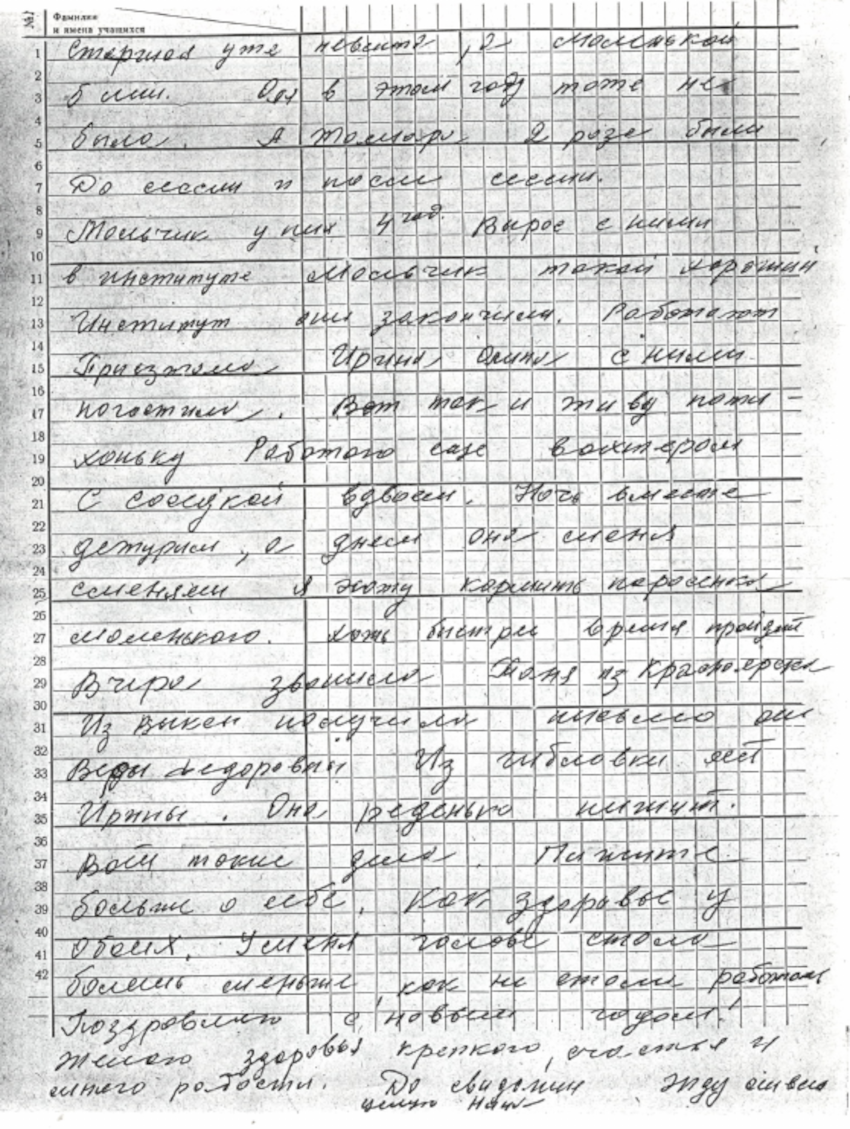 №
Фамилия
и имена учащихся
1
2
3
4
5
6
7
8
9
10
11
12
13
14
15
16
17
18
19
20
21
22
23
24
25
26
27
28
29
30
31
32
33
34
35
36
37
38
39
40
41
42
Старшая уже невеста, а маленькой
5 лет. Оля в этом году тоже не
была. А Тамара 2 раза были
До сессии и после сессии.
Мальчик у них 4 год. Вырос с ними
в институте Мальчик такой хороший
Институт они закончили. Работают
Приезжала Ирина с ними
погостила. Вот так и живу поти-
хоньку Работаю еще вахтером
С соседкой вдвоем. Ночь вместе
дежурим, а днем она меня
сменяет я хожу кормить поросенка
маленького. хоть быстрее время пройдет
Вчера звонила Таня из Красноярска
Из Выксы получила письмо от
Веры Федоровны Из от
Ирины. Она реденько пишут.
Вот такие дела. Пишите
больше о себе. Как здоровье у
обоих. У меня голова стала
болеть меньше как не стала работать
Поздравляю с новым годом!
Желаю здоровья крепкого, счастья и
много радости. До свидания Жду ответа
целую